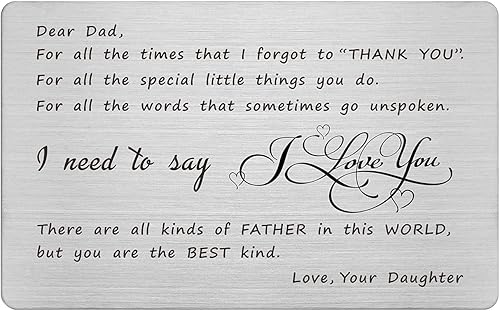 Dear Dad,
For all the times that I forgot to “THANK YOU”.
For all the special little things you do.
For all the words that sometimes go unspoken.
I need to say I Love You
There are all kinds of FATHER in this WORLD,
but you are the BEST kind.
Love, Your Daughter